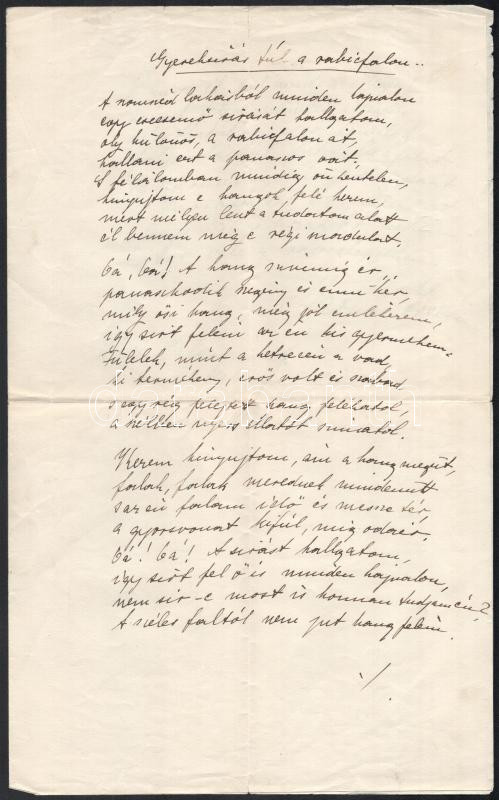 Gyereksírás túl a rabicfalon..
A szomszéd lakásból minden hajnalon
egy csecsemő sírását hallgatom,
oly különös, a rabicfalon át,
hallani ezt a panaszos oát,
S félálomban mindig önkéntelen,
kinyujtom e hangok felé kezem,
mert milyen lent a tudatom alatt
él bennem még e régi mozdulat,
Oá, Oá! A hang szívemig ér,
panaszkodik szegény és enni kér,
mily ősi hang, még jól emlékezem,
így sírt felém az én kis gyermekem.
Fülelek, mint a ketrecén a vad
ki termékeny, erős volt és szabad
s egy rég felejtett hang feléhatol,
a szellő illatát
Kezem kinyujtom, ám a hang megüt,
falak, falak merednek mindenütt
s az én falam idő és messze tér,
a gyorsvonat kifúl, míg odaér.
Oá! Oá! A sírást hallgatom,
így sírt fel ő is minden hajnalon,
nem sír-e most is honnan tudjam én?
A széles faltól nem jut hang felém.